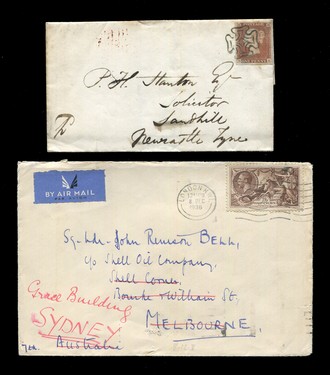 P. H. Stanton Esq
Solicitor
Sandhill
Newcastle Tyne
BY AIR MAIL
PAR AVION
LONDON
8 DEC
1936
Sq-Ldr-John Renison BELL,
c/o Shell Oil Company,
Shell Corner,
Bourke & William St.
MELBOURNE,
Grace Building
SYDNEY
Australia